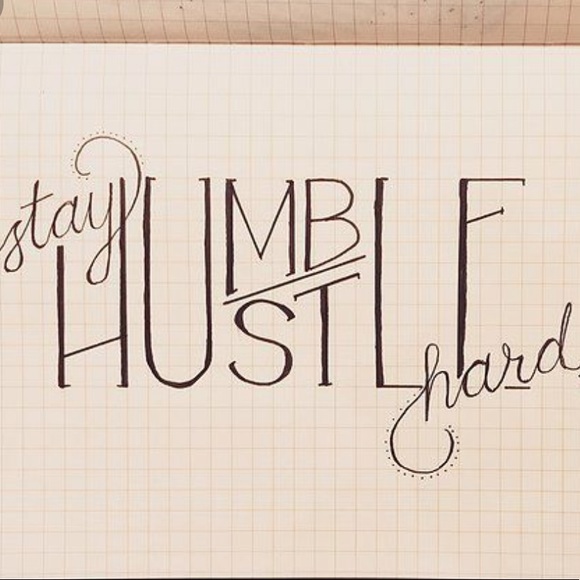 stay HUMBLE
HUSTLE hard